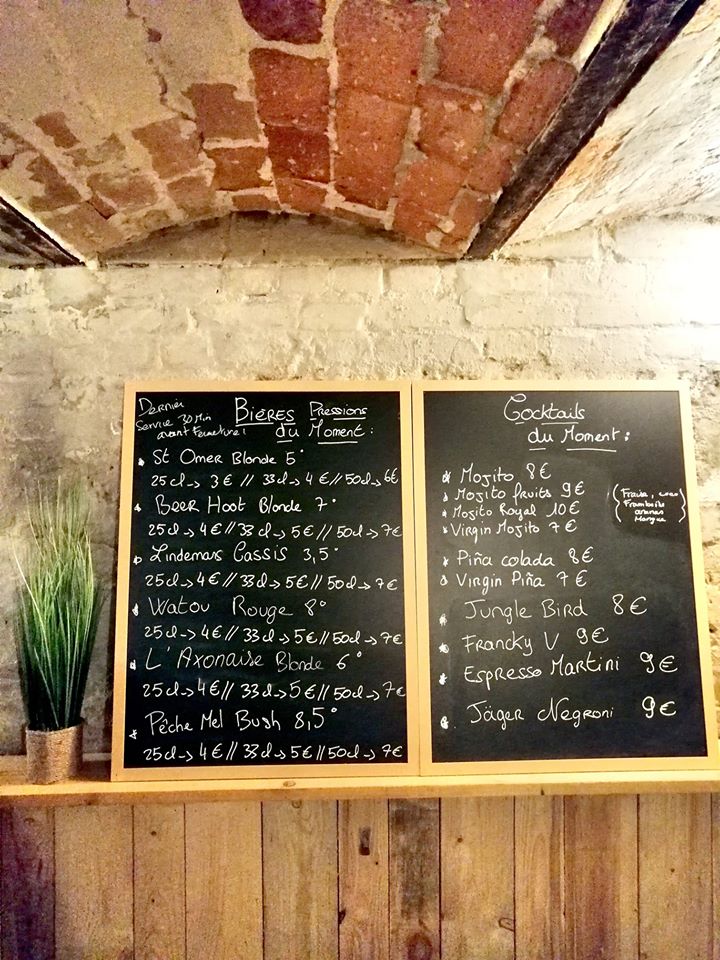 Dernier
Service 30 Min
avant Fermeture !
Bières Pressions
du Moment :
* St Omer Blonde 5°
25cl → 3€ // 33cl → 4€ // 50cl → 6€
* Beer Hoot Blonde 7°
25cl → 4€ // 33cl → 5€ // 50cl → 7€
* Lindemans Cassis 3,5°
25cl → 4€ // 33cl → 5€ // 50cl → 7€
* Watou Rouge 8°
25cl → 4€ // 33cl → 5€ // 50cl → 7€
* L'Axonaise Blonde 6°
25cl → 4€ // 33cl → 5€ // 50cl → 7€
* Pêche Mel Bush 8,5°
25cl → 4€ // 33cl → 5€ // 50cl → 7€
Cocktails
du Moment :
* Mojito 8€
* Mojito fruits 9€
(Fraise, coco
Framboise
ananas
Mangue)
* Mojito Royal 10€
* Virgin Mojito 7€
* Piña colada 8€
* Virgin Piña 7€
* Jungle Bird 8€
* Francky V 9€
* Espresso Martini 9€
* Jäger Negroni 9€